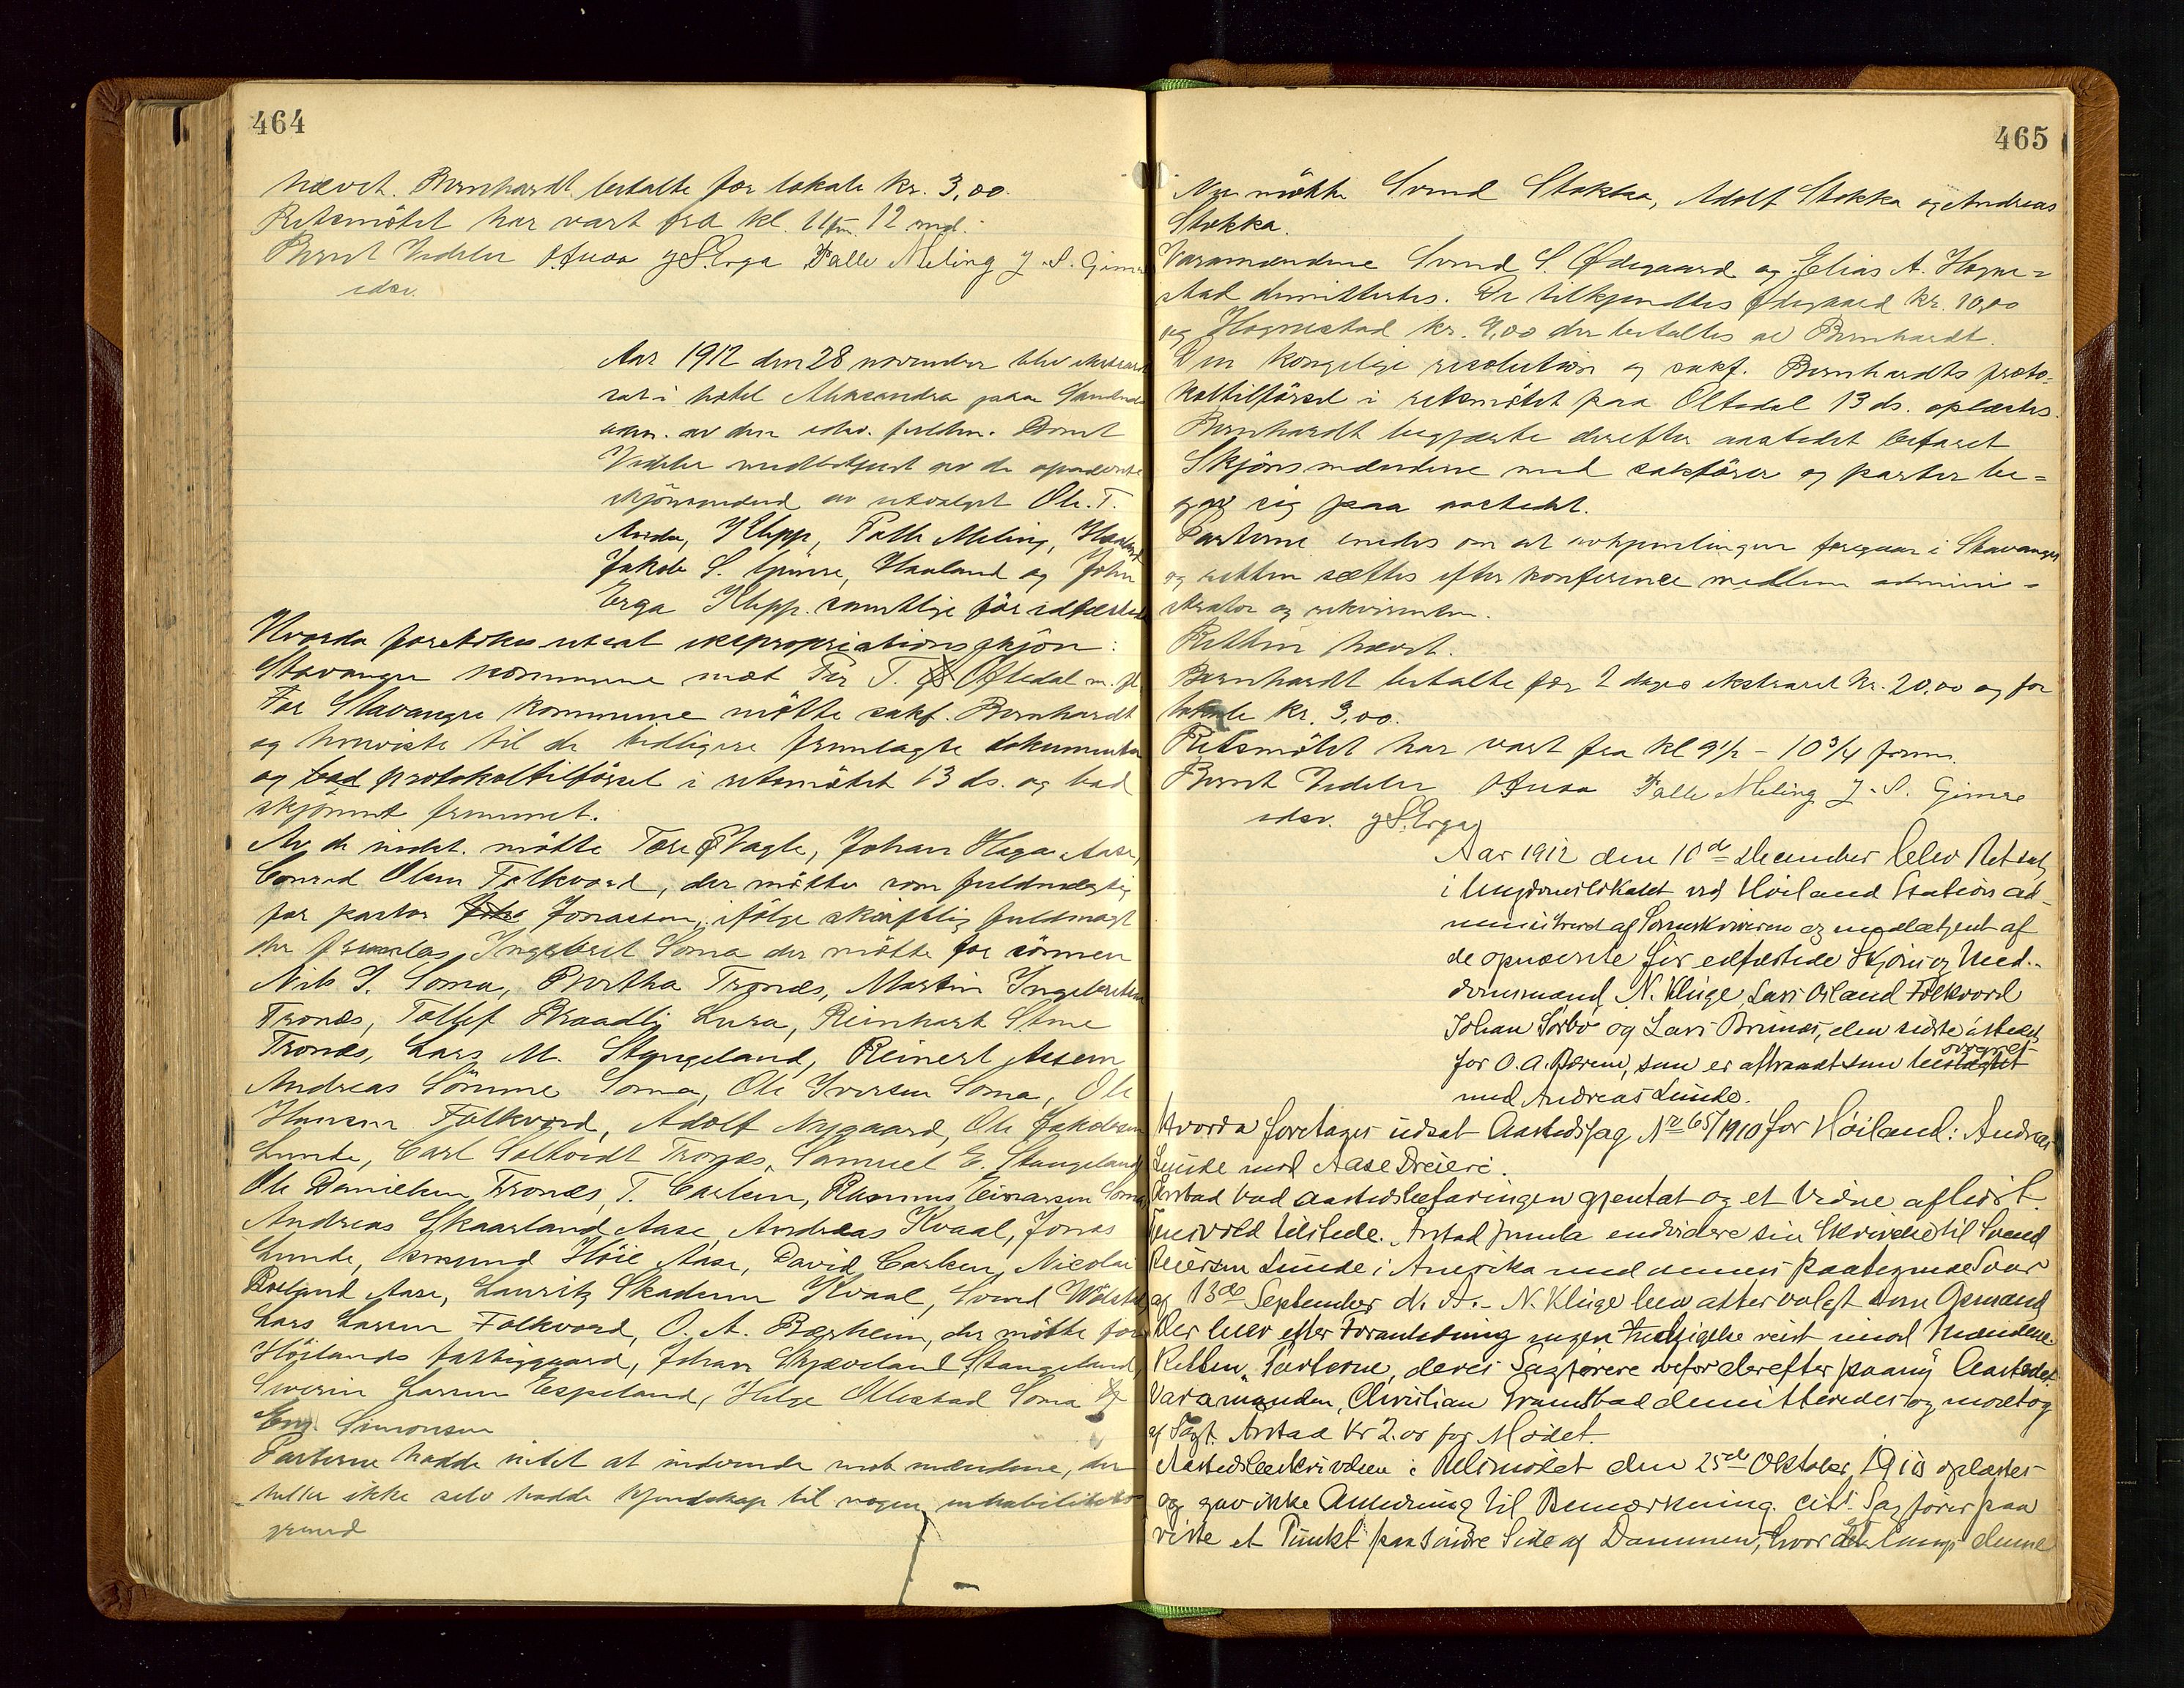 464
hævet. Bernhardt betalte for lokale kr. 3,00.
Retsmötet har vart fra kl. 11 fm. 12 md.
Bernt Videler OAnda J S. Erga Palle Meling J. S. Gimre
edsv.
Aar 1912 den 28 november blev ekstraret
sat i hotel Alexandra paa Sandnes
adm. av den edsv. fuldm. Bernt
Videler medbetjent av de opnævnte
skjönsmænd av utvalget Ole. T.
Anda, Klepp, Palle Meling, Haaland
Jakob S. Gimre, Haaland og John
Erga Klepp. samtlige för edfæstede
Hvorda foretokes utsat ekspropriationsskjön:
Stavanger kommune mot Per T. Oftedal m. fl.
For Stavanger kommune mötte sakf. Bernhardt
og henviste til de tidligere fremlagte dokumenter
og bad protokoltilförsel i retsmötet 13 ds. og bad
skjönnet fremmet.
Av de indst. mötte Tore Vagle, Johan Haga Aase,
Conrad Olsen Folkvord, der mötte som fuldmægtig
for pastor Jonassen, ifölge skriftlig fuldmagt
der fremlas, Ingebret Soma der mötte for sönnen
Nils I. Soma, Bertha Tronæs, Martin Ingebretsen
Tronæs, Tollef Braadli Lura, Reinhart Stene
Tronæs, Lars M. Stangeland, Reinert Assen
Andreas Sömme Soma, Ole Iversen Soma, Ole
Hansen Folkvord, Adolf Nygaard, Ole Jakobsen
Lunde, Carl Soltvedt Tronæs, Samuel E. Stangeland
Ole Danielsen Tronæs, T. Carlsen, Rasmus Einarsen Soma,
Andreas Skaarland Aase, Andreas Kvaal, Jonas
Lunde, Asmund Höie Aase, David Carlsen, Nicolai
Roeland Aase, Lauritz Skadsem Kvaal, Svend
Lars Larsen Folkvord, O. A. Bærheim, der mötte for
Höilands fattiggaard, Johan Skjæveland Stangeland,
Severin Larsen Espeland, Helge Ollestad Soma &
Eng. Simonsen
Parterne hadde intet at indvende mot mændene, der
heller ikke selv hadde kjendskap til nogen inhabilitets-
grund
465
Nu mötte Svend Stokka, Adolf Stokka og Andreas
Stokka.
Varamændene Svend S. Ødegaard og Elias A. Hogne=
stad dimitteres. De tilkjendtes Ødegaard kr. 10,00
og Hognestad kr. 9,00 der betaltes av Bernhardt.
Den kongelige resolution og sakf. Bernhardts proto-
koltilförsel i retsmötet paa Oltedal 13 ds. oplæstes.
Bernhardt begjærte derefter aastedet befaret
Skjönsmændene med sakförer og parter be=
gav sig paa aastedet.
Parterne enedes om at avhjemlingen foregaar i Stavanger
og retten sættes efter konference mellem admini-
strator og rekvirenten.
Retten hævet.
Bernhardt betalte for 2 dages ekstraret kr. 20,00 og for
lokale kr. 3,00.
Retsmötet har vart fra kl 9 1/2 - 10 3/4 form.
Bernt Videler OAnda Palle Meling J. S. Gimre
edsv. J S. Erga
Aar 1912 den 10de December blev Ret sat
i Ungdomslokalet ved Höiland Station ad-
ministreret af Sorenskriveren og medbetjent af
de opnævnte før edfæstede Skjøns og Med-
domsmænd N. Kluge, Lars Osland Folkvord
Johan Sörbö og Lars Brunes, den sidste istedet
for O. A. Bærem, som er aftraadt som besvogret
med Andreas Lunde.
Hvorda foretages udsat Aastedssag No 65/1910 for Höiland: Andreas
Lunde mod Aase Dreieri.
Arstad bad aastedsbefaringen gjentat og et Vidne afhørt
tilstede. Arstad fremla endvidere sin Skrivelse til Svend
Reiersen Lunde i Amerika med dennes paategnede Svar
af 13de September d. A. - N. Kluge blev atter valgt som Opmand
Der blev efter Foranledning ingen Indsigelse reist imod Mændene.
Retten, Parterne, deres Sagførere befor derefter paany Aastedet.
Varamanden, Christian Tramsbad demitteredes og modtog
af Sagf. Arstad Kr 2.00 for Mødet.
Aastedsbeskrivelsen i Retsmödet den 25de Oktober 1910 oplæstes
og gav ikke Anledning til Bemærkning. Citt. Sagfører paa
viste et Punkt paa søndre Side af Dammen, hvor det langs denne